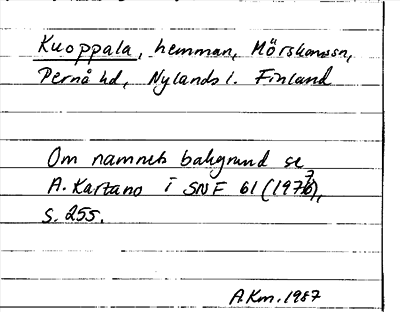 Kuoppala, hemman, Mörskomssn,
Pernå hd, Nylands l. Finland
Om namnets bakgrund se
A. Kartano i SNF 61 (1977),
s. 255.
AKm. 1987